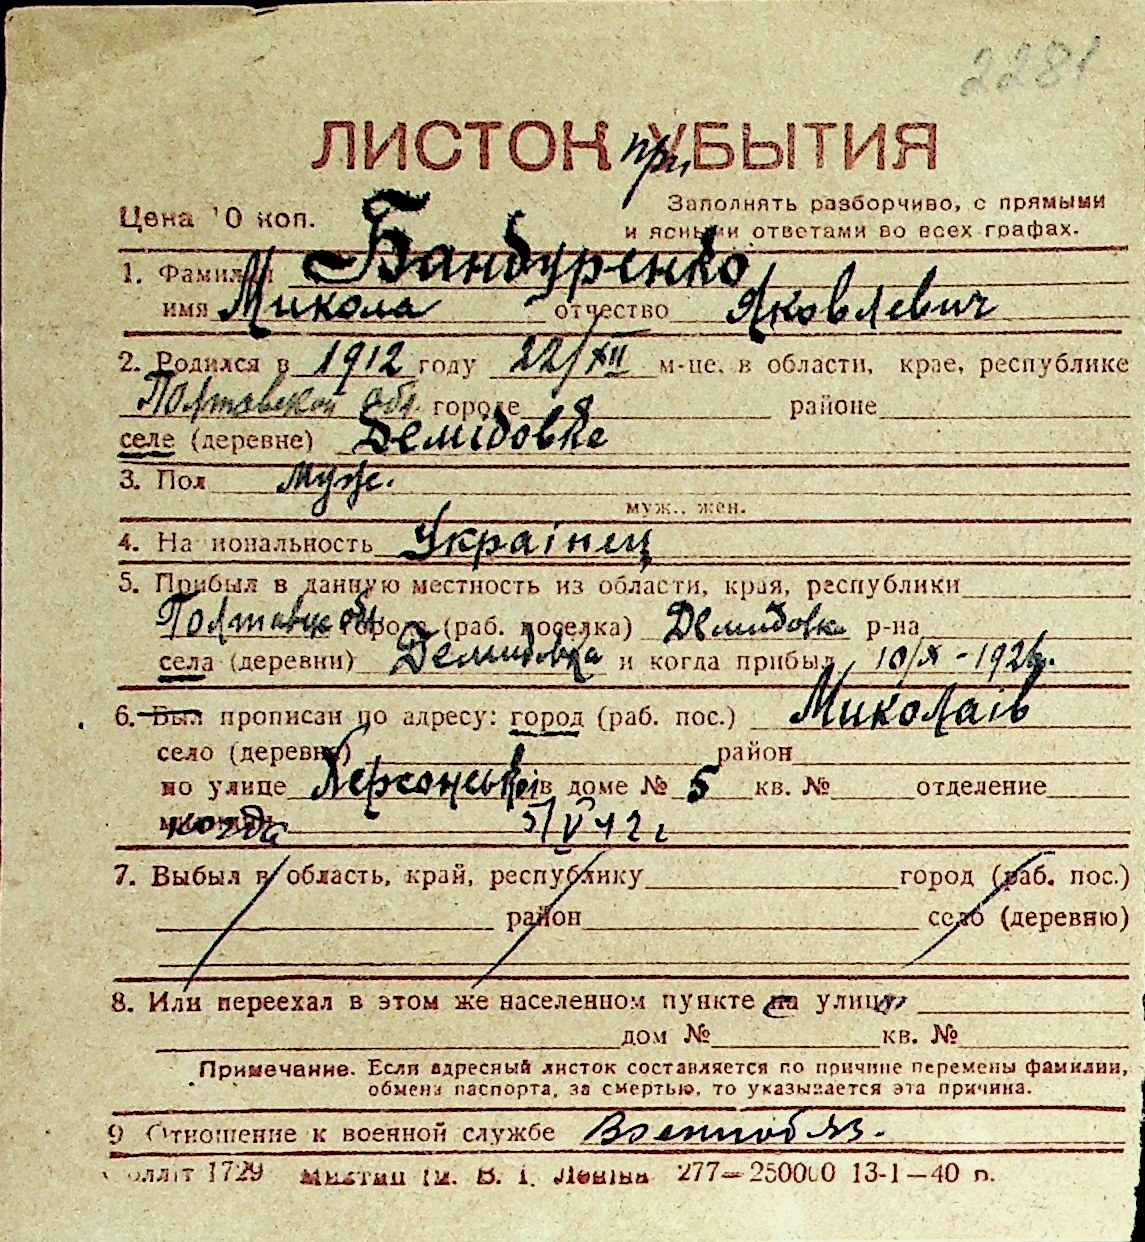 2281
ЛИСТОК при УБЫТИЯ
Цена 10 коп.
Заполнять разборчиво, с прямыми
и ясными ответами во всех графах.
1. Фамилия Бандуренко
имя Микола отчество Яковлевич
2. Родился в 1912 году 22/XII м-це, в области, крае, республике
Полтавской обл. городе районе
селе (деревне) Демідовке
3. Пол муж.
муж., жен.
4. На иональность Украінец
5. Прибыл в данную местность из области, края, республики
Полтавск обл. города (раб. поселка) Демидовка р-на
села (деревни) Демидовка и когда прибыл 10/X - 1926г.
6. Был прописан по адресу: город (раб. пос.) Миколаів
село (деревня) район
по улице Херсонській в доме № 5 кв. № отделение
когда 5/V 42 г
7. Выбыл в область, край, республику город (раб. пос.)
район село (деревню)
8. Или переехал в этом же населенном пункте на улицу
дом № кв. №
Примечание. Если адресный листок составляется по причине перемены фамилии,
обмена паспорта, за смертью, то указывается эта причина.
9 Отношение к военной службе Военнообяз.
1729 ім. В. І. Леніна 277—250000 13-1—40 р.